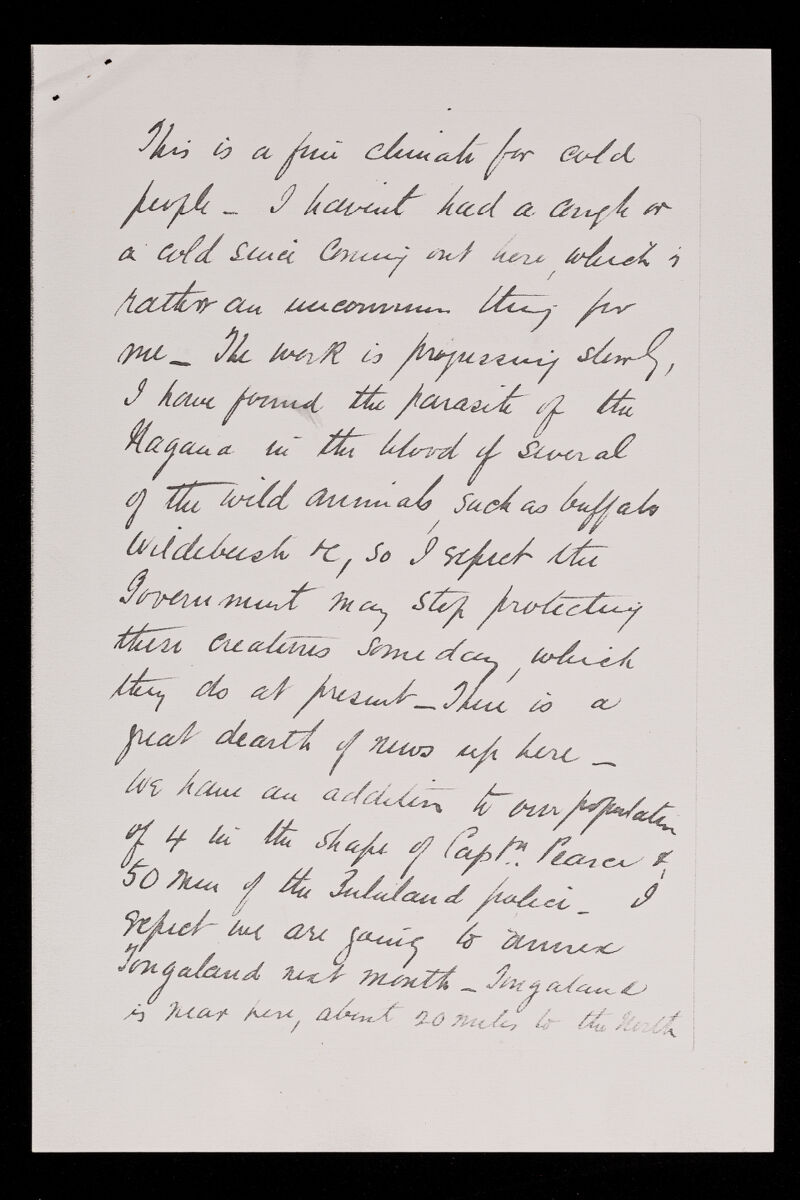 This is a fine climate for cold
people – I havent had a cough or
a cold since coming out here, which is
rather an uncommon thing for
me – The work is progressing slowly,
I have found the parasite of the
Nagana in the blood of several
of the wild animals, such as buffalo
Wildebeeste &c, so I expect the
Government may stop protecting
these creatures someday, which
they do at present – There is a
great dearth of news up here –
We have an addition to our population
of 4 in the shape of Captn. Pearce &
50 men of the Zululand police – I
expect we are going to annex
Tongaland next month – Tongaland
is near here, about 20 miles to the North